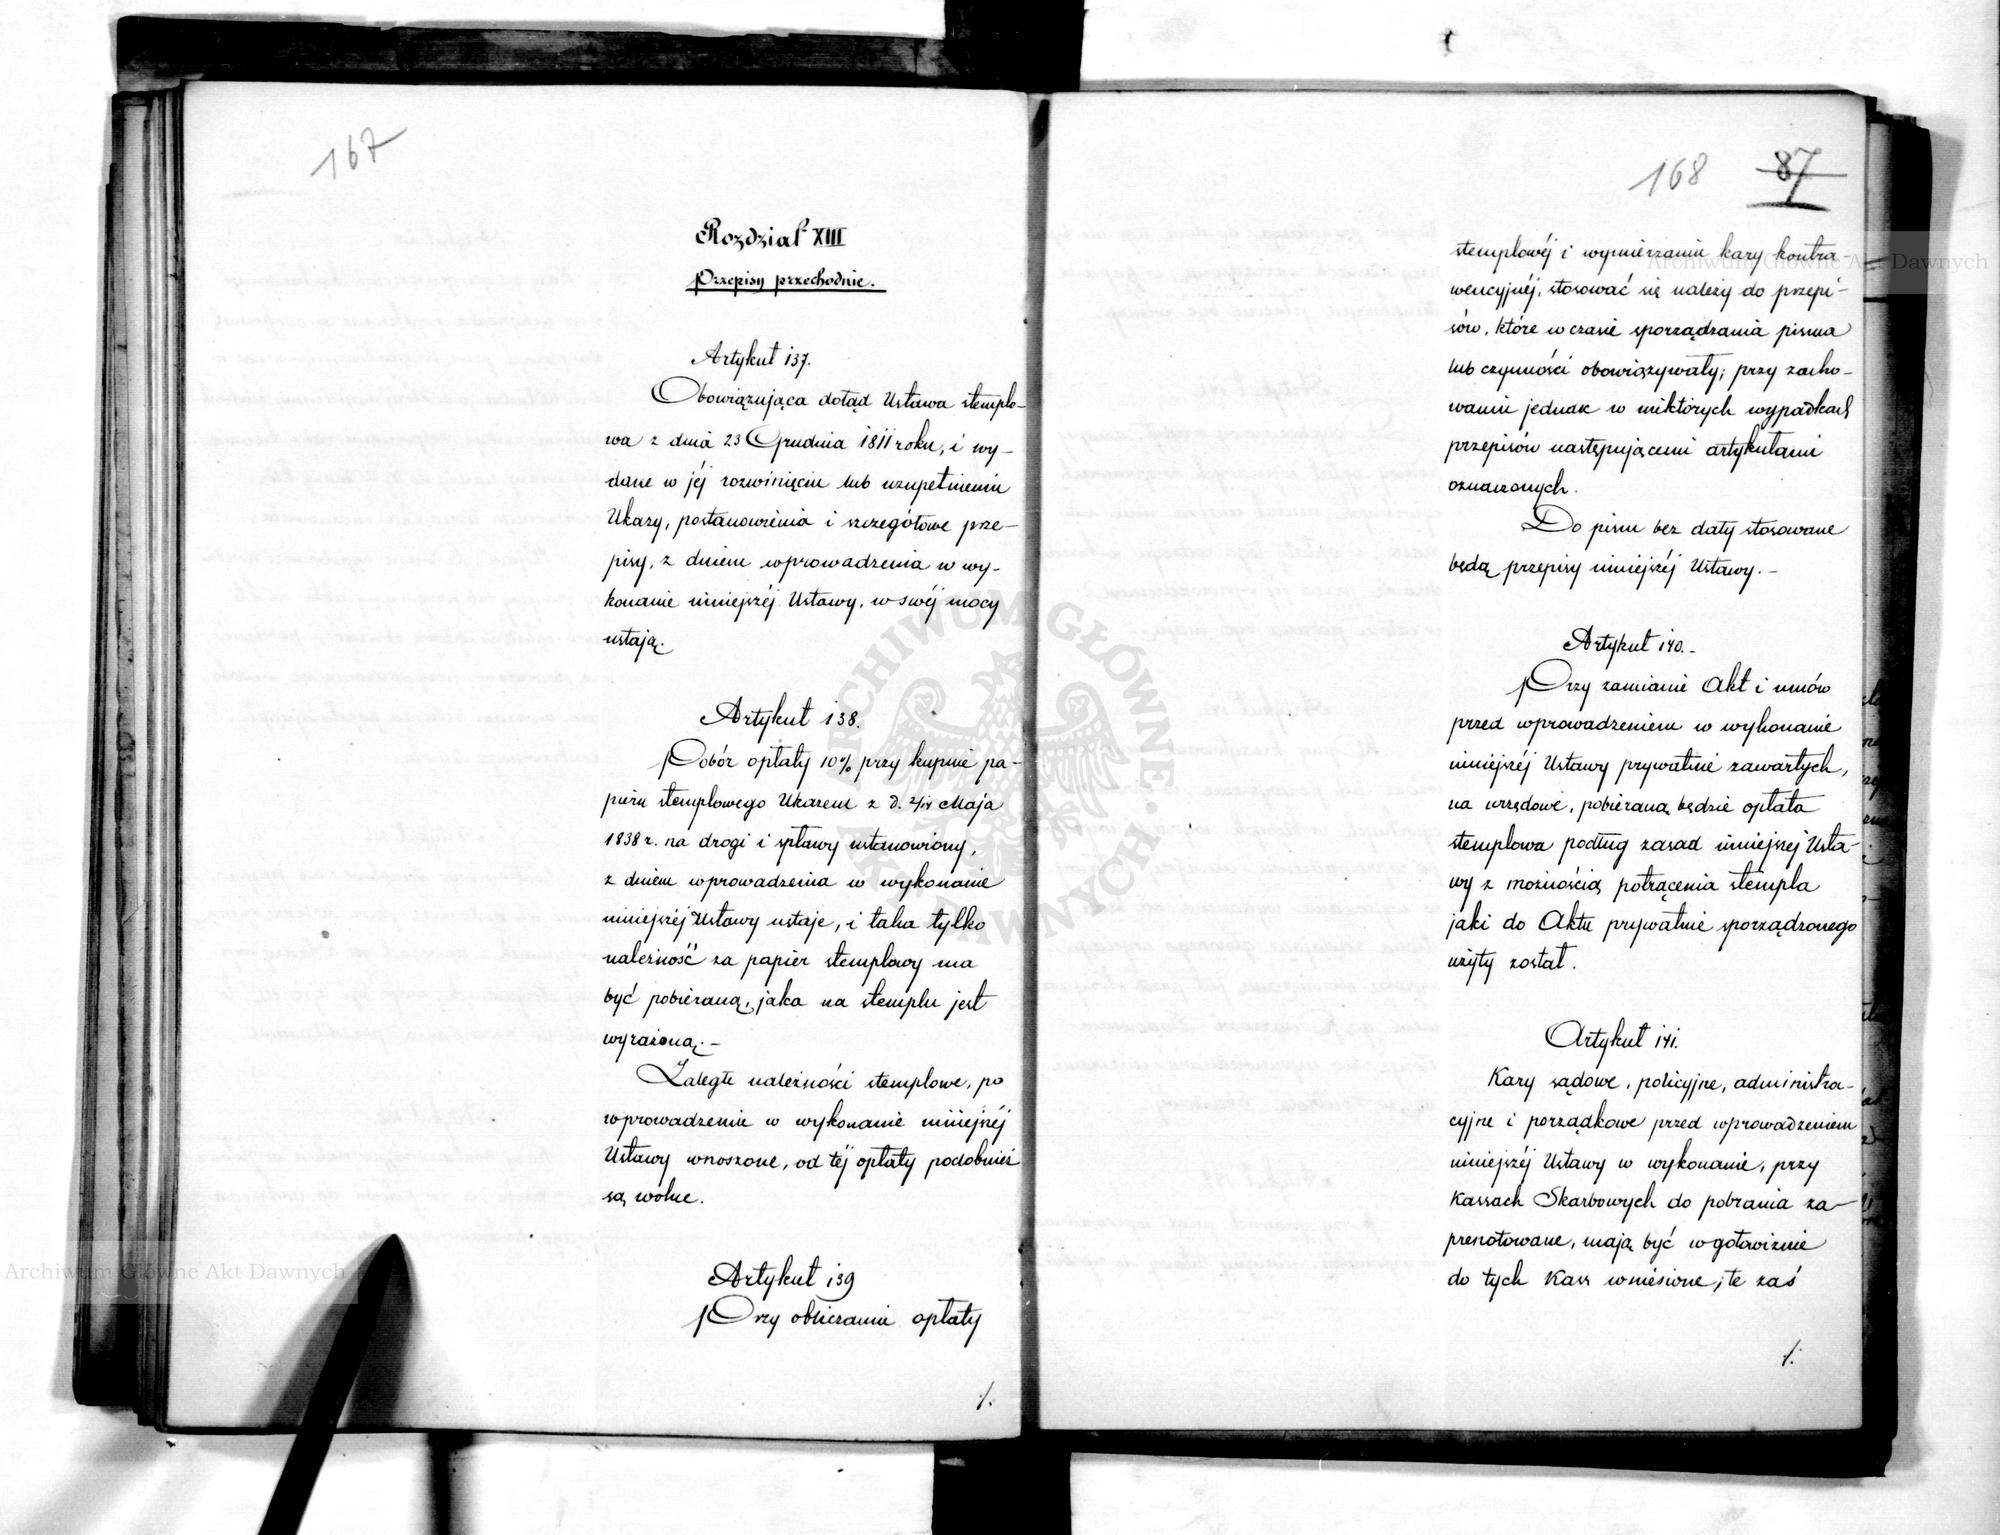 167
Rozdział XIII
Przepisy przechodnie.
Artykuł 137.
Obowiązująca dotąd Ustawa stemplo-
wa z dnia 23 Grudnia 1811 roku, i wy-
dane w jéj rozwinięciu lub uzupełnieniu
Ukazy, postanowienia i szczegółowe prze-
pisy, z dniem wprowadzenia w wy-
konanie niniejszéj Ustawy, w swéj mocy
ustają.
Artykuł 138.
Pobór opłaty 10% przy kupnie pa-
pieru stemplowego Ukazem z d. Maja
1838 r. na drogi i spławy ustanowiony,
z dniem wprowadzenia w wykonanie
niniejszéj Ustawy ustaje, i taka tylko
należność za papier stemplowy ma
być pobieraną, jaka na stemplu jest
wyrażoną.-
Zaległe należności stemplowe, po
wprowadzeniu w wykonanie niniejszéj
Ustawy wnoszone, od téj opłaty podobnież
są wolne.
Artykuł 139
Przy obliczaniu opłaty
./.
168 87
stemplowéj i wymierzaniu kary kontra-
wencyjnéj, stosować się należy do przepi-
sów, które w czasie sporządzania pisma
lub czynności obowiązywały; przy zacho-
waniu jednak w niektórych wypadkach
przepisów następującemi artykułami
oznaczonych.
Do pism bez daty stosowane
będą przepisy niniejszéj Ustawy.-
Artykuł 140.-
Przy zamianie Akt i umów
przed wprowadzeniem w wykonanie
niniejszéj Ustawy prywatnie zawartych,
na urzędowe, pobieraną będzie opłata
stemplowa podług zasad niniejszéj Usta-
wy z możnością potrącenia stempla
jaki do Aktu prywatnie sporządzonego
użyty został.
Artykuł 141.
Kary sądowe, policyjne, administra-
cyjne i porządkowe przed wprowadzeniem
niniejszéj Ustawy w wykonanie, przy
Kassach Skarbowych do pobrania za-
prenotowane, mają być w gotowiźnie
do tych Kass wniesione; te zaś
./.
Archiwum Główne Akt Dawnych
Archiwum Główne Akt Dawnych
ARCHIWUM GŁÓWNE AKT DAWNYCH